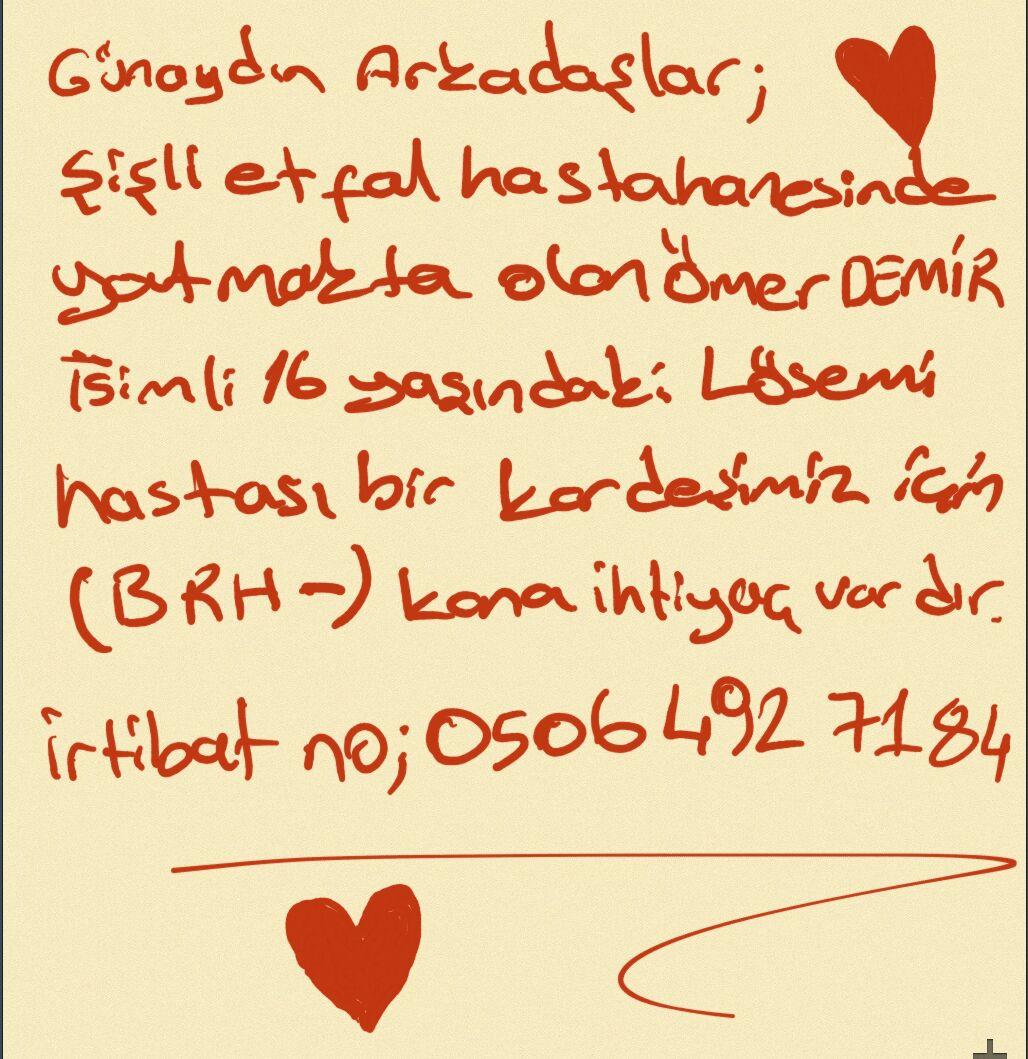 Günaydın Arkadaşlar;
Şişli etfal hastahanesinde
yatmakta olan Ömer DEMİR
İsimli 16 yaşındaki Lösemi
hastası bir kardeşimiz için
(BRH-) kana ihtiyaç vardır.
irtibat no; 0506 492 7184